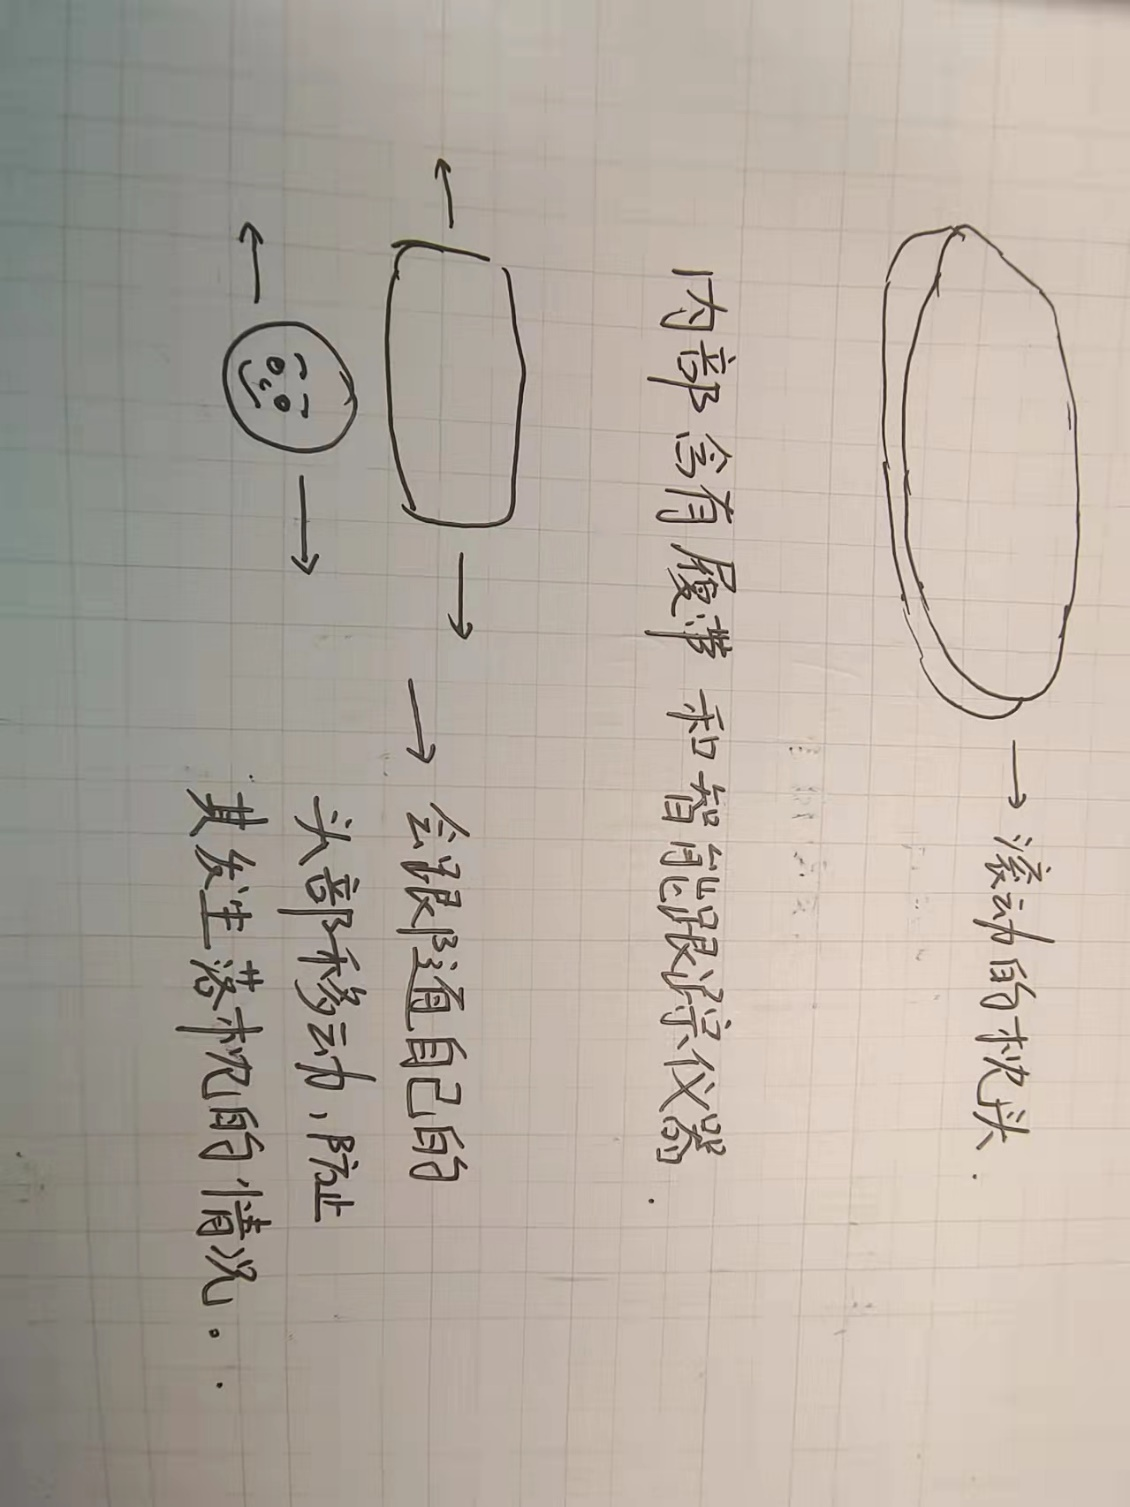 → 滚动的枕头.
内部含有履带和智能跟踪仪器.
→ 会跟随自己的
头部移动, 防止
其发生落枕的情况.